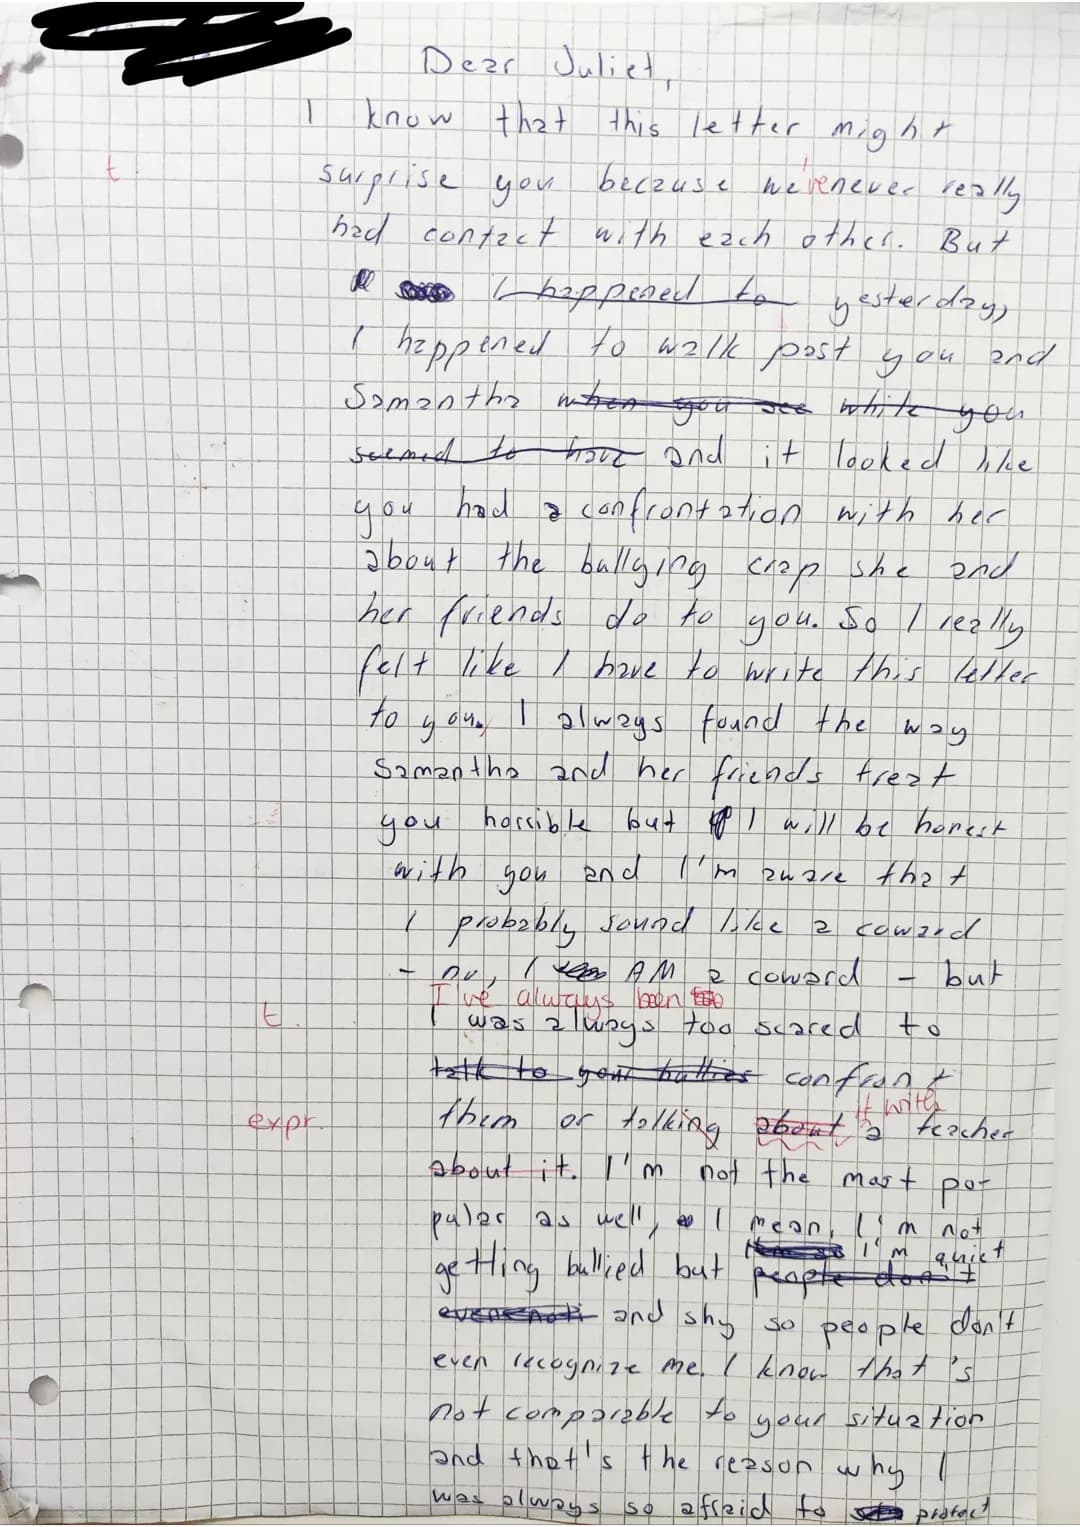 Dear Juliet,
I know that this letter might
t.
surprise you because we've never really
had contact with each other. But
I happened to yesterday,
I happened to walk past you and
Samantha when you see while you
seemed to have and it looked like
you had a confrontation with her
about the bullying crap she and
her friends do to you. So I really
felt like I have to write this letter
to you. I always found the way
Samantha and her friends treat
you horrible but I will be honest
with you and I'm aware that
I probably sound like a coward
- no, I AM a coward - but
I've always been too
t.
I was always too scared to
talk to your bullies confront
it with
expr.
them or talking about a teacher
about it. I'm not the most po-
pular as well, I mean, I'm not
I'm quiet
getting bullied but people don't
even and shy so people don't
even recognize me. I know that's
not comparable to your situation
and that's the reason why I
was always so afraid to protect